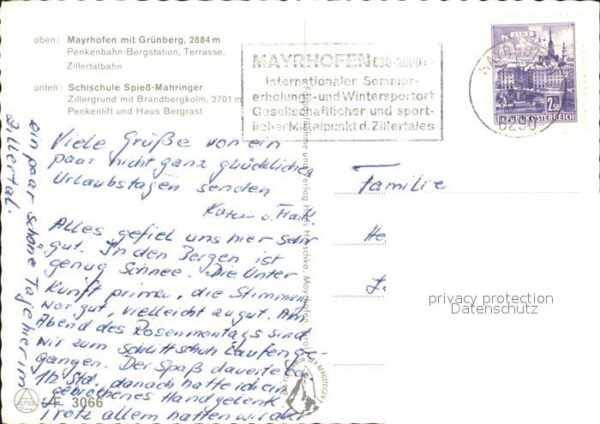 oben: Mayrhofen mit Grünberg, 2884 m
Penkenbahn-Bergstation, Terrasse,
Zillertalbahn
unten: Schischule Spieß-Mahringer
Zillergrund mit Brandbergkolm, 2701 m
Penkenlift und Haus Bergrast
MAYRHOFEN 630-2000 m
Internationaler Sommer-
erholungs- und Wintersportort
Gesellschaftlicher und sport-
licher Mittelpunkt d. Zillertales
LINZ
2.50
REPUBLIK ÖSTERREICH
MAYRHOFEN
6290
Viele Grüße von ein
paar nicht ganz glücklichen
Urlaubstagen senden
Karin u.
Alles gefiel uns hier sehr
gut. In den Bergen ist
genug Schnee. Die Unter
kunft prima, die Stimmung
war gut, vielleicht zu gut. Am
Abend des Rosenmontags sind
wir zum Schlittschuhlaufen ge-
gangen. Der Spaß dauerte ca
1½ Std, danach hatte ich ein
gebrochenes Handgelenk
Trotz allem hatten wir aber
ein paar schöne Tage hier im
Zillertal.
Familie
He
privacy protection
Datenschutz
3066